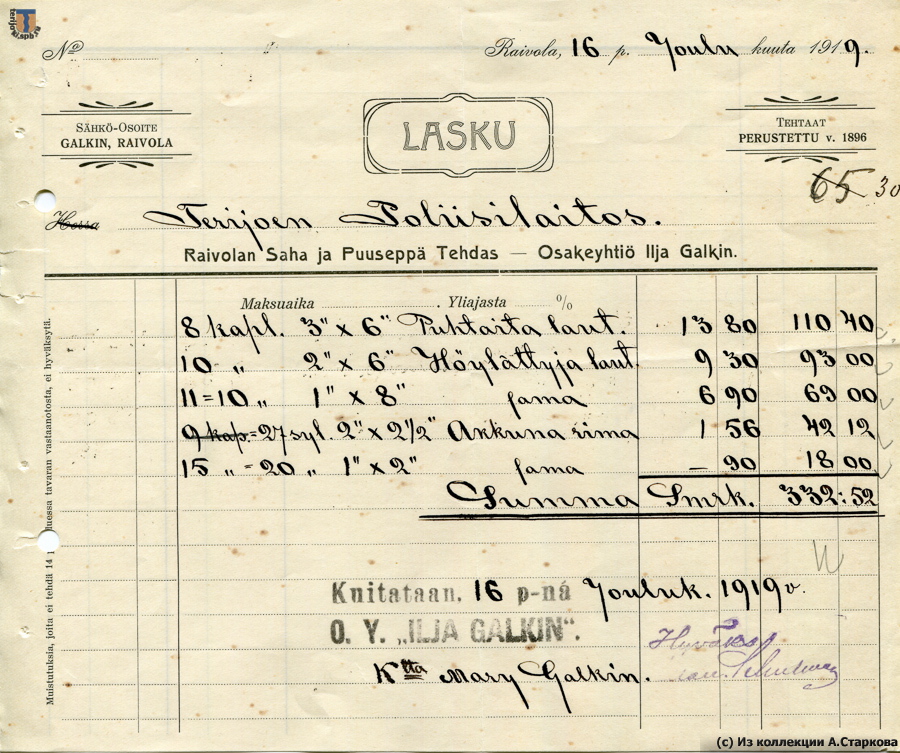 terijoki.spb.ru
№
Raivola, 16 p. Joulu kuuta 1919.
SÄHKÖ-OSOITE
GALKIN, RAIVOLA
LASKU
TEHTAAT
PERUSTETTU v. 1896
65 30
Herra Terijoen Poliisilaitos.
Raivolan Saha ja Puuseppä Tehdas — Osakeyhtiö Ilja Galkin.
Maksuaika . Yliajasta %
8 kapl. 3" x 6" Puhtaita laut. 13 80 110 40
10 " 2" x 6" Höylättyja laut. 9 30 93 00
11=10 " 1" x 8" sama 6 90 69 00
9 kap.=27 syl. 2" x 2½" Akkuna rima 1 56 42 12
15 " =20 " 1" x 2" sama — 90 18 00
Summa Smrk. 332:52
Muistutuksia, joita ei tehdä 14 luessa tavaran vastaanotosta, ei hyväksytä.
Kuitataan. 16 p-nä Jouluk. 1919 v.
O. Y. „ILJA GALKIN".
Ktta Mary Galkin.
(c) Из коллекции А.Старкова